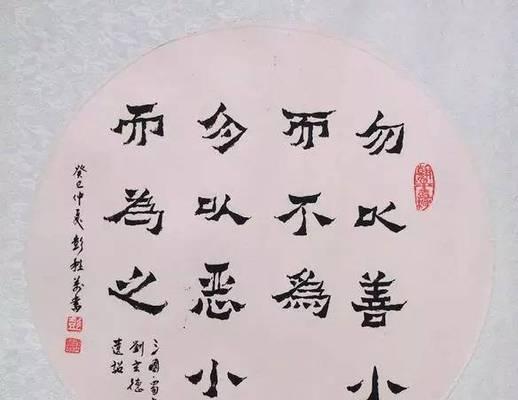 勿以善小
而不為
勿以恶小
而為之
三國蜀
劉玄德
遺詔
癸巳仲夏彭
書